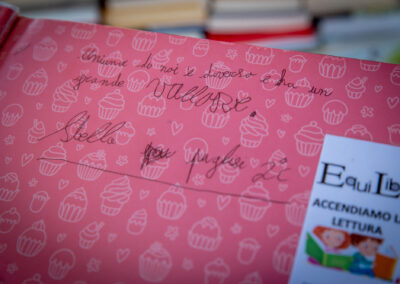 Ognuno di noi è diverso e ha un
grande VALORE.
Stella
puglise 2C
EquiLib
ACCENDIAMO L
LETTURA